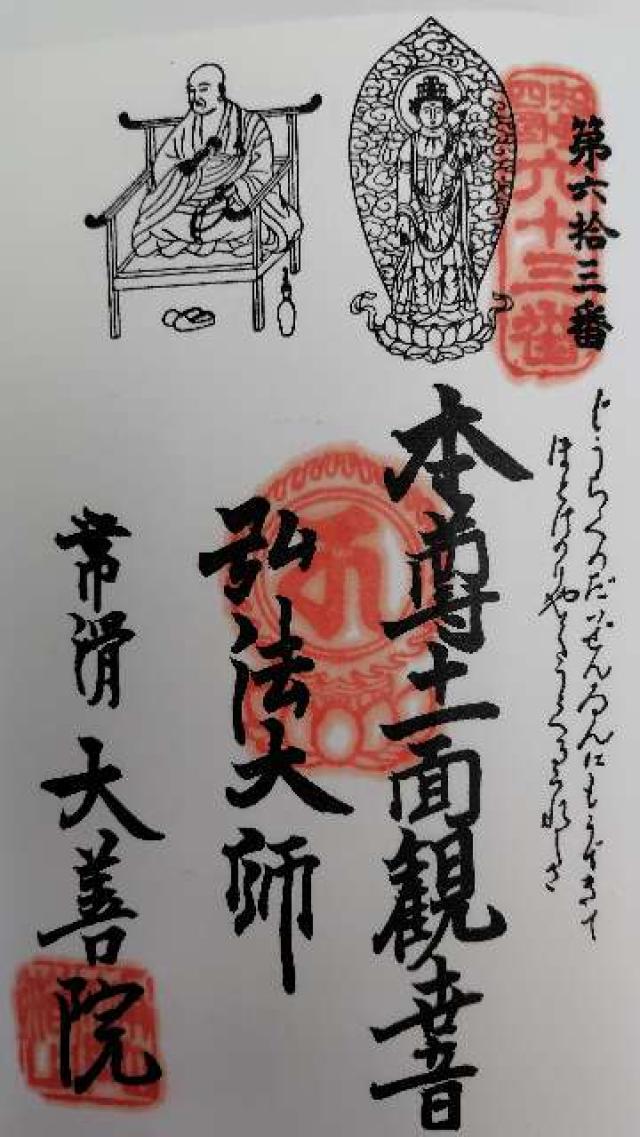 第六拾三番
六十三番
じょうらくのだいぜんゐんにもうできて
ほとけのりやくをうくるうれしさ
本尊十一面観世音
弘法大師
常滑 大善院